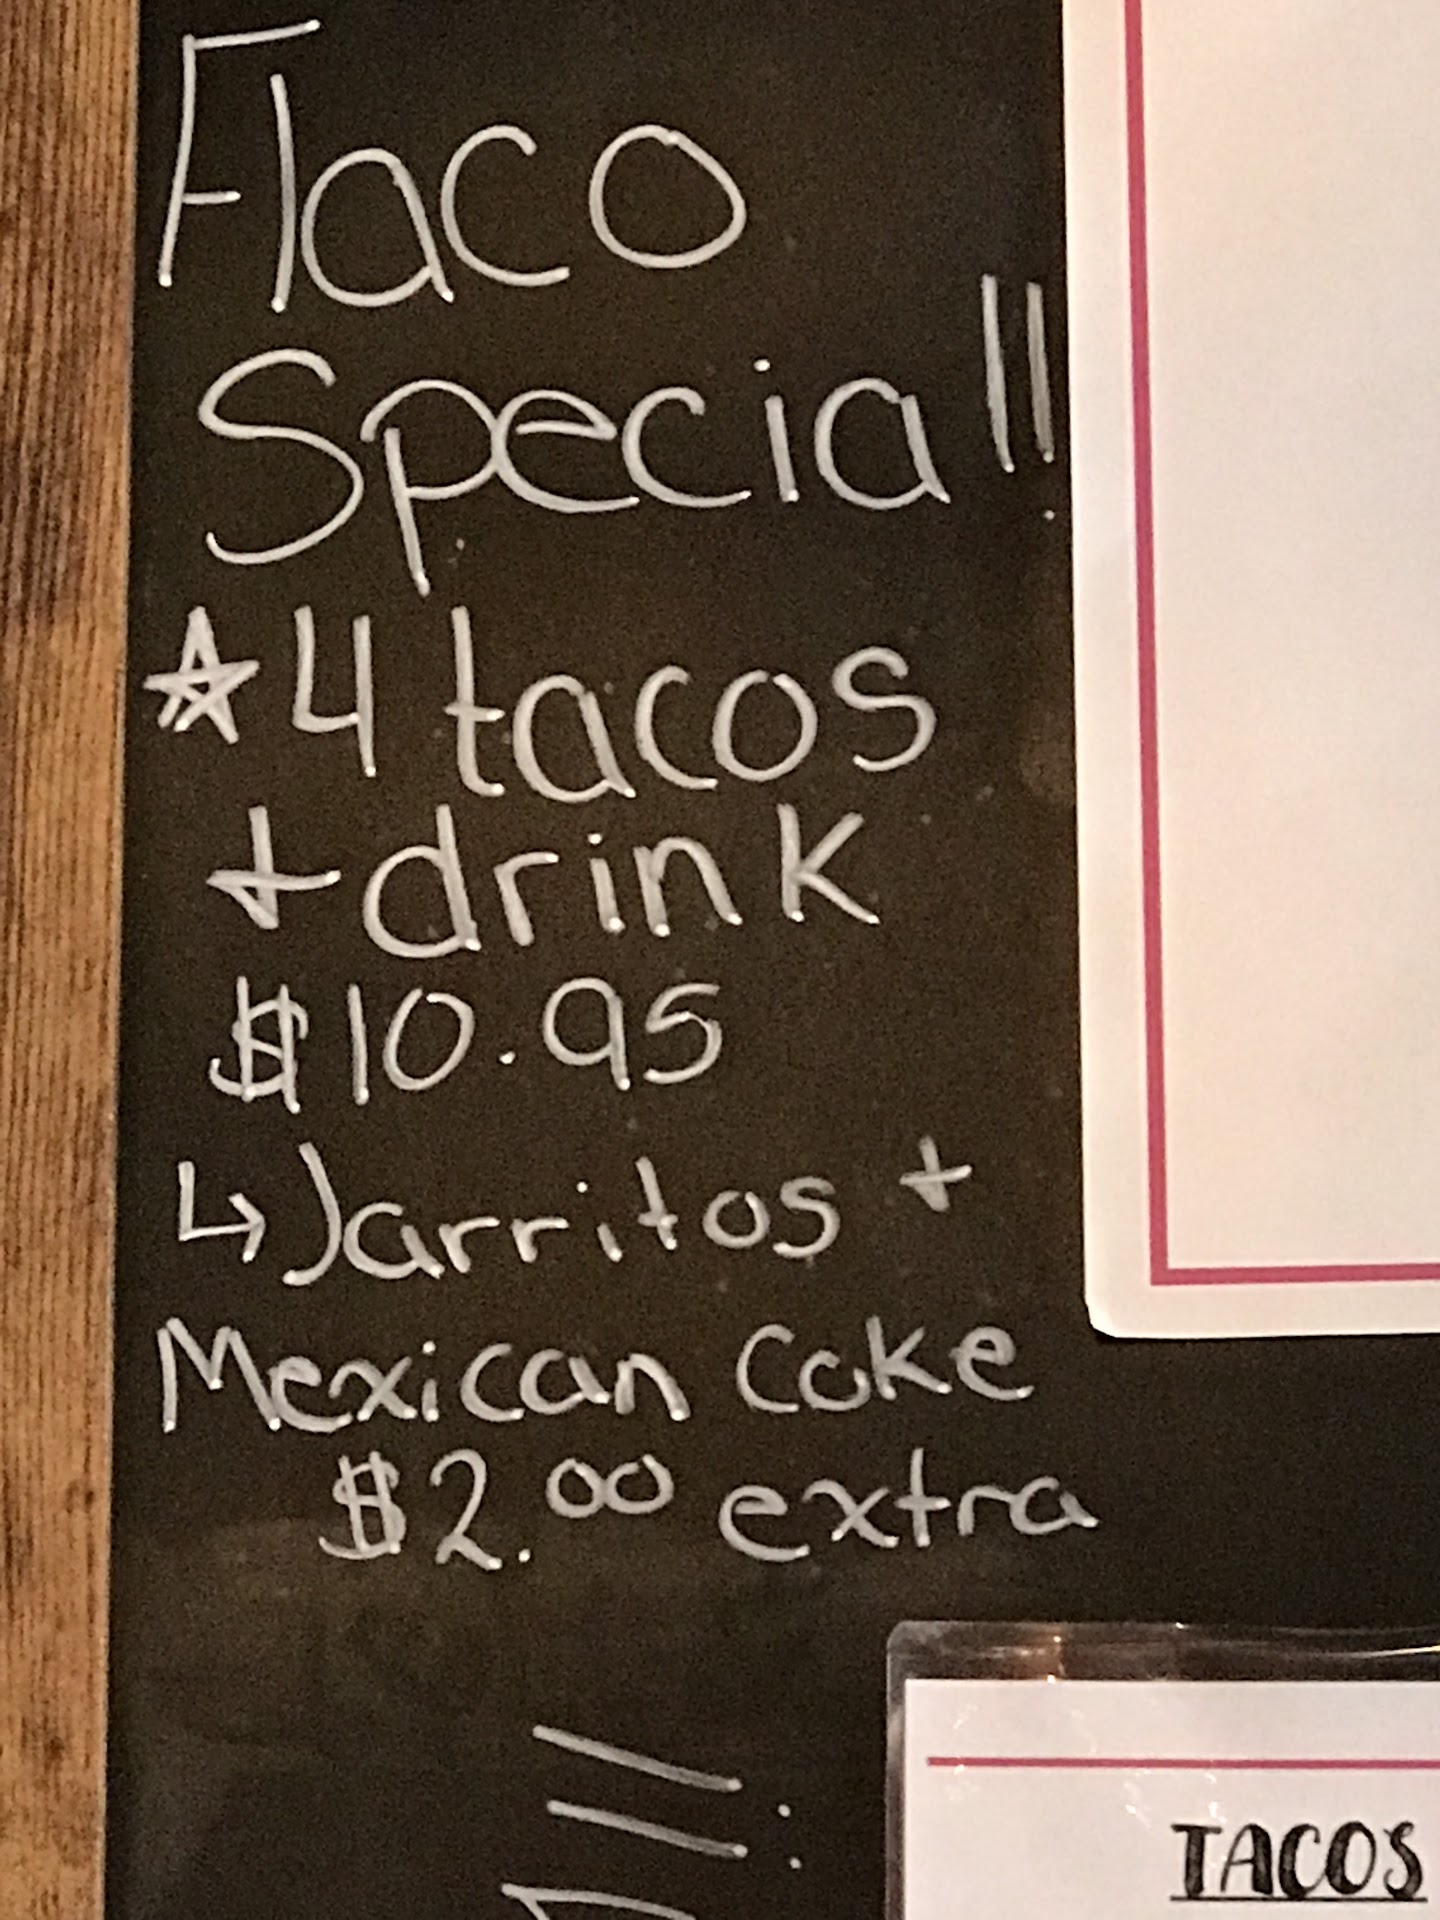 Flaco
Special!
☆4 tacos
+ drink
$10.95
↳Jarritos +
Mexican Coke
$2.00 extra
TACOS